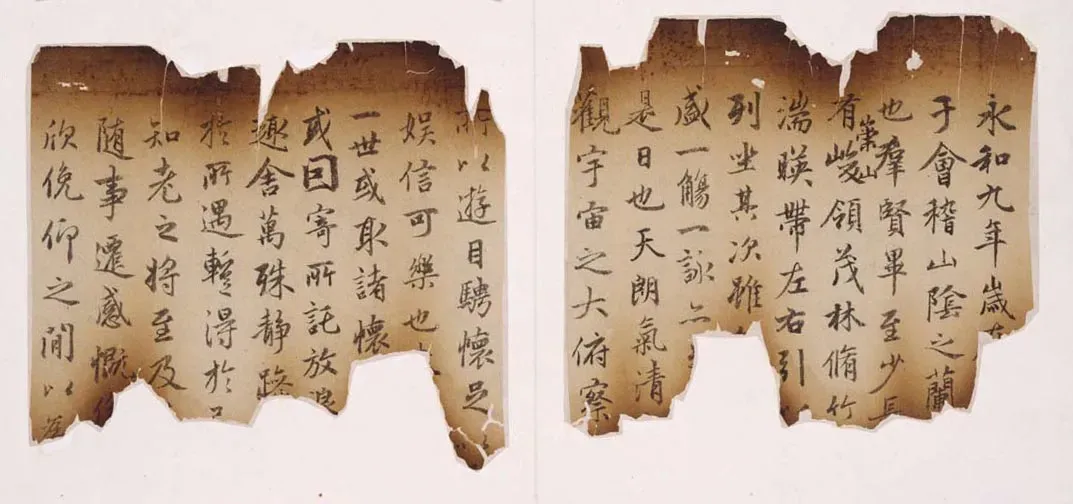 永和九年歲
于會稽山陰之蘭
也羣賢畢至少長
有崇山峻領茂林脩竹
湍暎帶左右引
列坐其次雖
盛一觴一詠亦
是日也天朗氣清
觀宇宙之大俯察
所以遊目騁懷足以
娛信可樂也
一世或取諸懷
或因寄所託放浪
趣舍萬殊靜躁
於所遇蹔得於
知老之將至及
隨事遷感慨係
欣俛仰之閒以